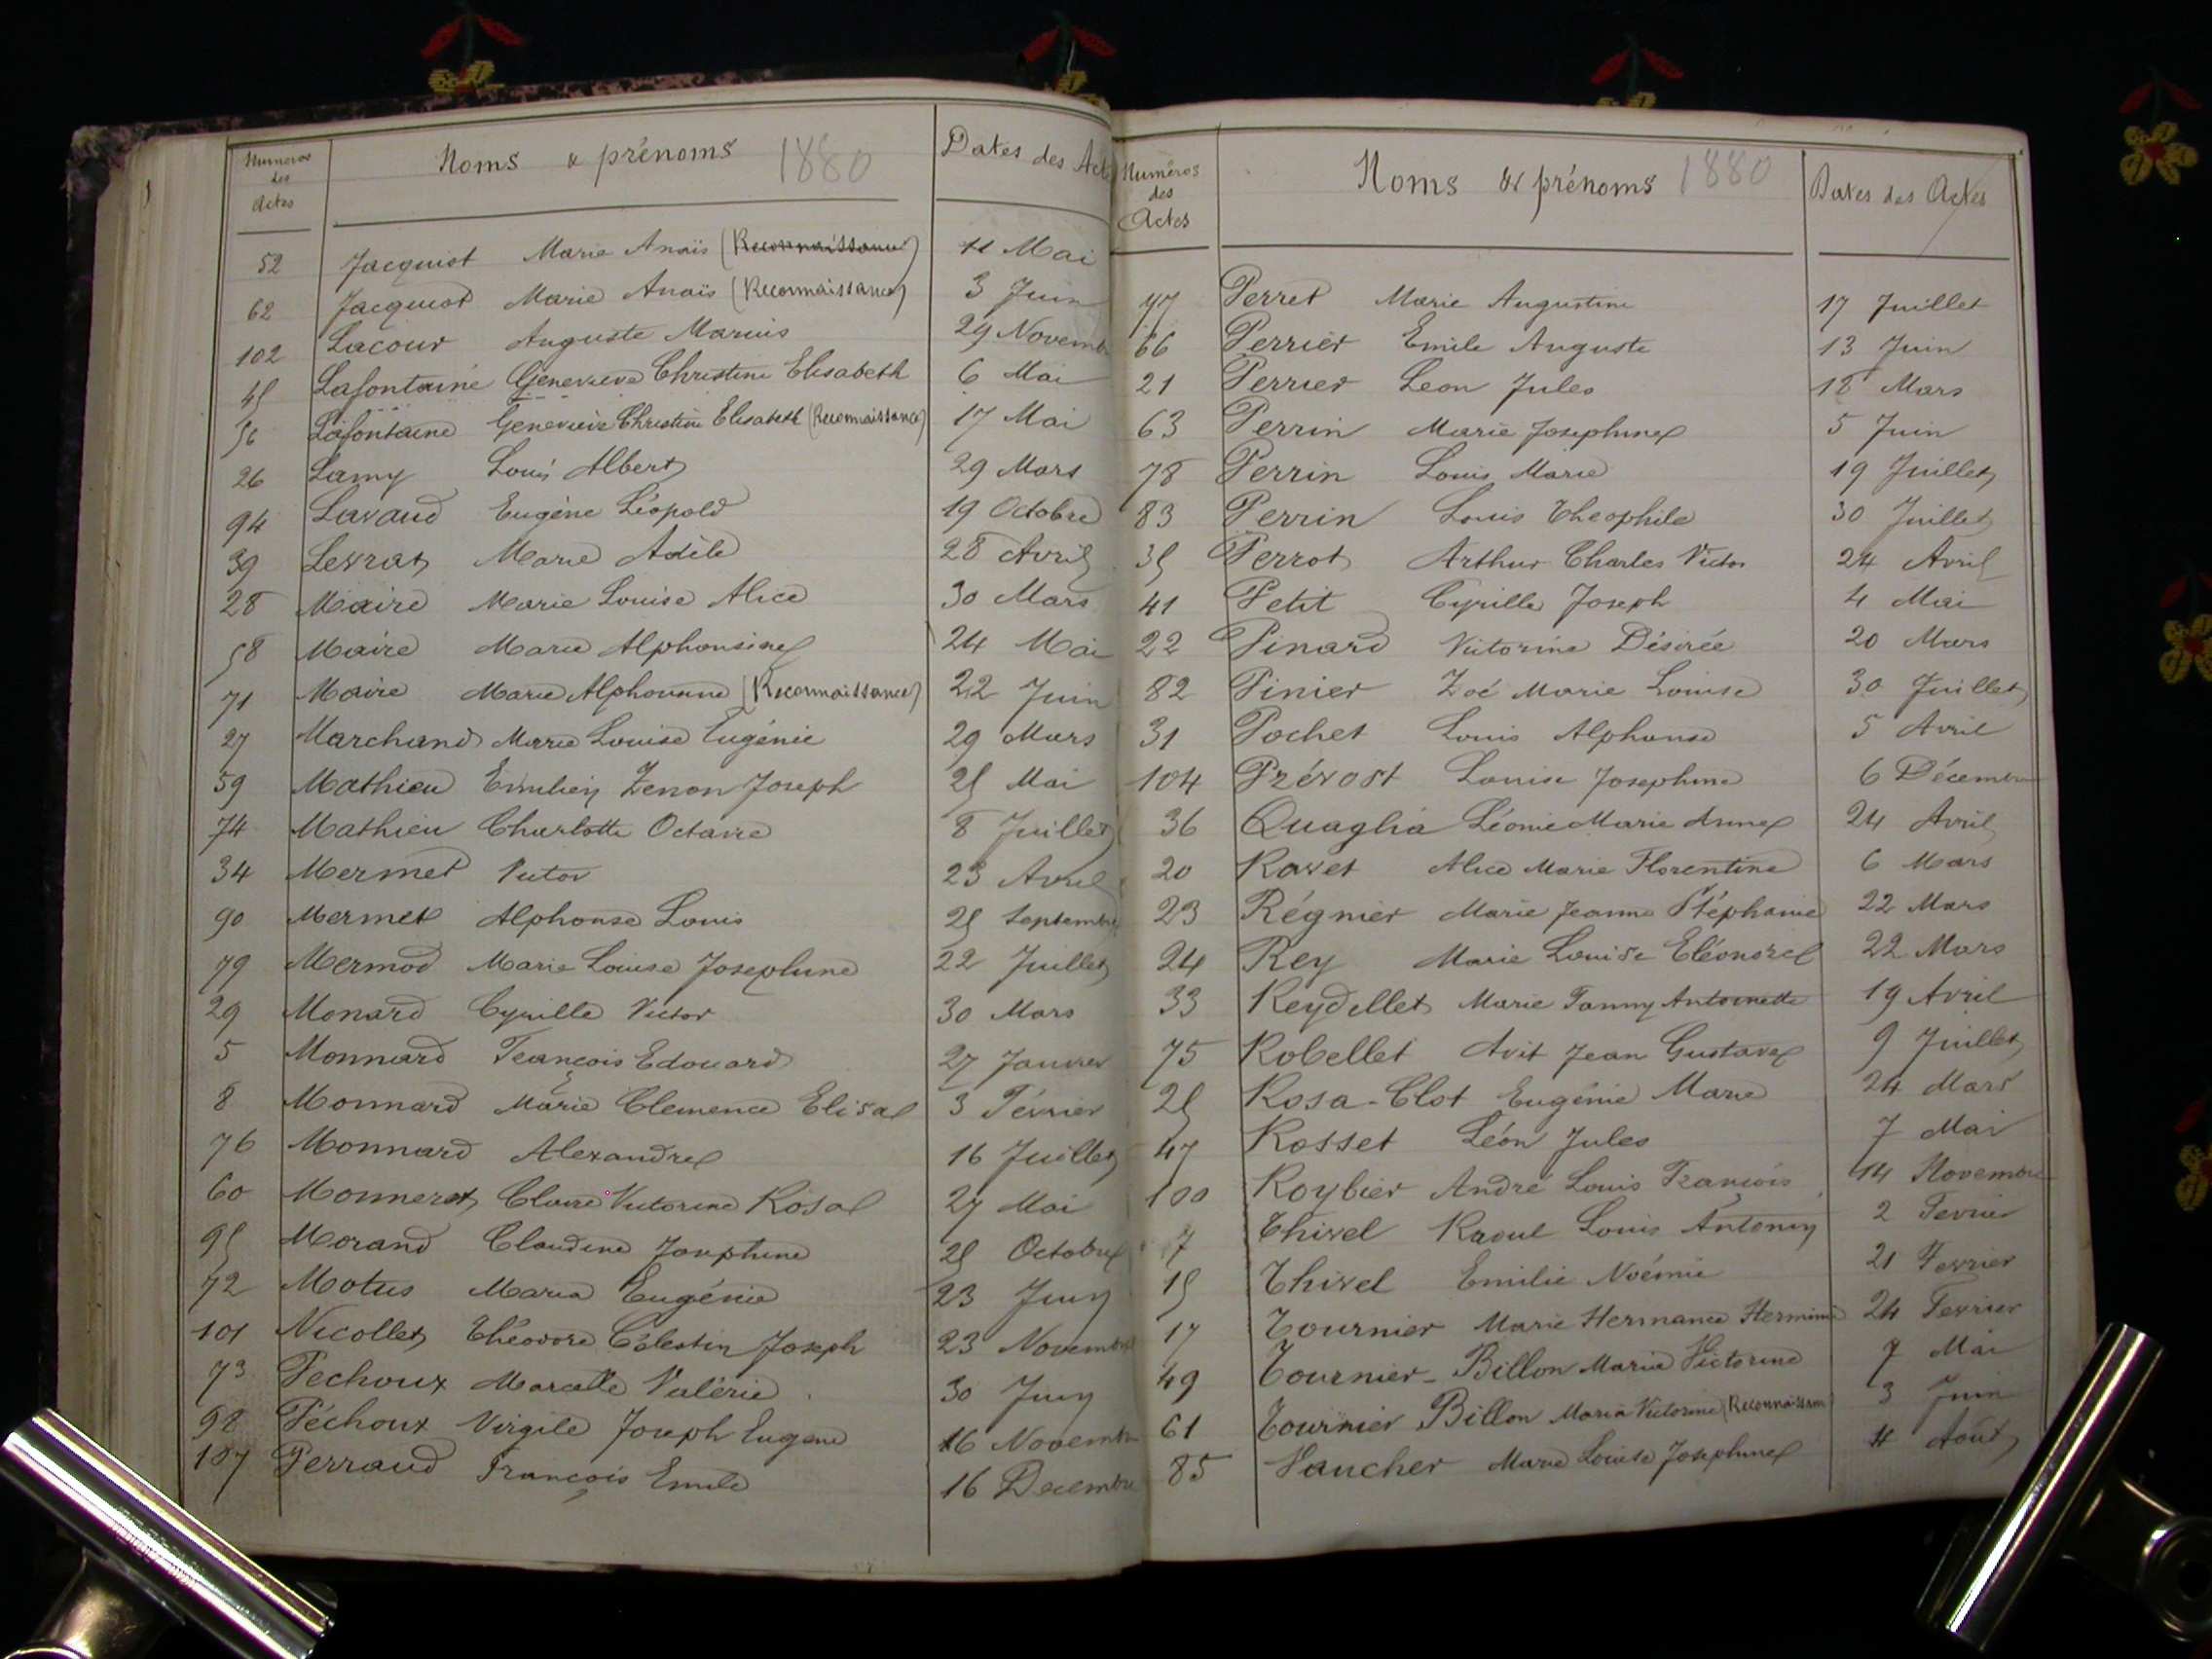 Numéros des Actes Noms & prénoms 1880 Dates des Act
52 Jacquiot Marie Anaïs (Reconnaissance) 11 Mai
62 Jacquiot Marie Anaïs (Reconnaissance) 3 Juin
102 Lacour Auguste Marius 29 Novemb
45 Lafontaine Geneviève Christine Elisabeth 6 Mai
56 Lafontaine Geneviève Christine Elisabeth (Reconnaissance) 17 Mai
26 Lamy Louis Albert 29 Mars
94 Lavaud Eugène Léopold 19 Octobre
39 Levrat Marie Adèle 28 Avril
28 Maire Marie Louise Alice 30 Mars
58 Maire Marie Alphonsine 24 Mai
71 Maire Marie Alphonsine (Reconnaissance) 22 Juin
27 Marchand Marie Louise Eugénie 29 Mars
59 Mathieu Emilien Zenon Joseph 25 Mai
74 Mathieu Charlotte Octavie 8 Juillet
34 Mermet Victor 23 Avril
90 Mermet Alphonse Louis 25 Septembre
79 Mermod Marie Louise Josephine 22 Juillet
29 Monard Cyrille Victor 30 Mars
5 Monnard François Edouard 27 Janvier
8 Monnard Marie Clemence Elisa 3 Février
76 Monnard Alexandre 16 Juillet
60 Monneret Claire Victorine Rosa 27 Mai
95 Morand Claudine Josephine 25 Octobre
72 Motus Maria Eugénie 23 Juin
101 Nicollet Théodore Célestin Joseph 23 Novembre
73 Pechoux Marcelle Valérie 30 Juin
98 Péchoux Virgile Joseph Eugene 16 Novembre
107 Perraud François Emile 16 Decembre
Numéros des Actes Noms & prénoms 1880 Dates des Actes
77 Perret Marie Augustine 17 Juillet
66 Perrier Emile Auguste 13 Juin
21 Perrier Leon Jules 18 Mars
63 Perrin Marie Josephine 5 Juin
78 Perrin Louis Marie 19 Juillet
83 Perrin Louis Theophile 30 Juillet
35 Perrot Arthur Charles Victor 24 Avril
41 Petit Cyrille Joseph 4 Mai
22 Pinard Victorine Désirée 20 Mars
82 Pinier Zoé Marie Louise 30 Juillet
31 Pochet Louis Alphonse 5 Avril
104 Prévost Louise Josephine 6 Décembre
36 Quaglia Léonie Marie Anne 24 Avril
20 Ravet Alice Marie Florentine 6 Mars
23 Régnier Marie Jeanne Stéphanie 22 Mars
24 Rey Marie Louise Eléonore 22 Mars
33 Reydellet Marie Fanny Antoinette 19 Avril
75 Robellet Avit Jean Gustave 9 Juillet
25 Rosa-Clot Eugénie Marie 24 Mars
47 Rosset Léon Jules 7 Mai
100 Roybier André Louis François 14 Novembre
7 Thivel Raoul Louis Antonin 2 Fevrier
15 Thivel Emilie Noémie 21 Fevrier
17 Tournier Marie Hermance Herminie 24 Fevrier
49 Tournier-Billon Maria Victorine 7 Mai
61 Tournier Billon Maria Victorine (Reconnaissan 3 Juin
85 Vaucher Marie Louise Josephine 11 Août